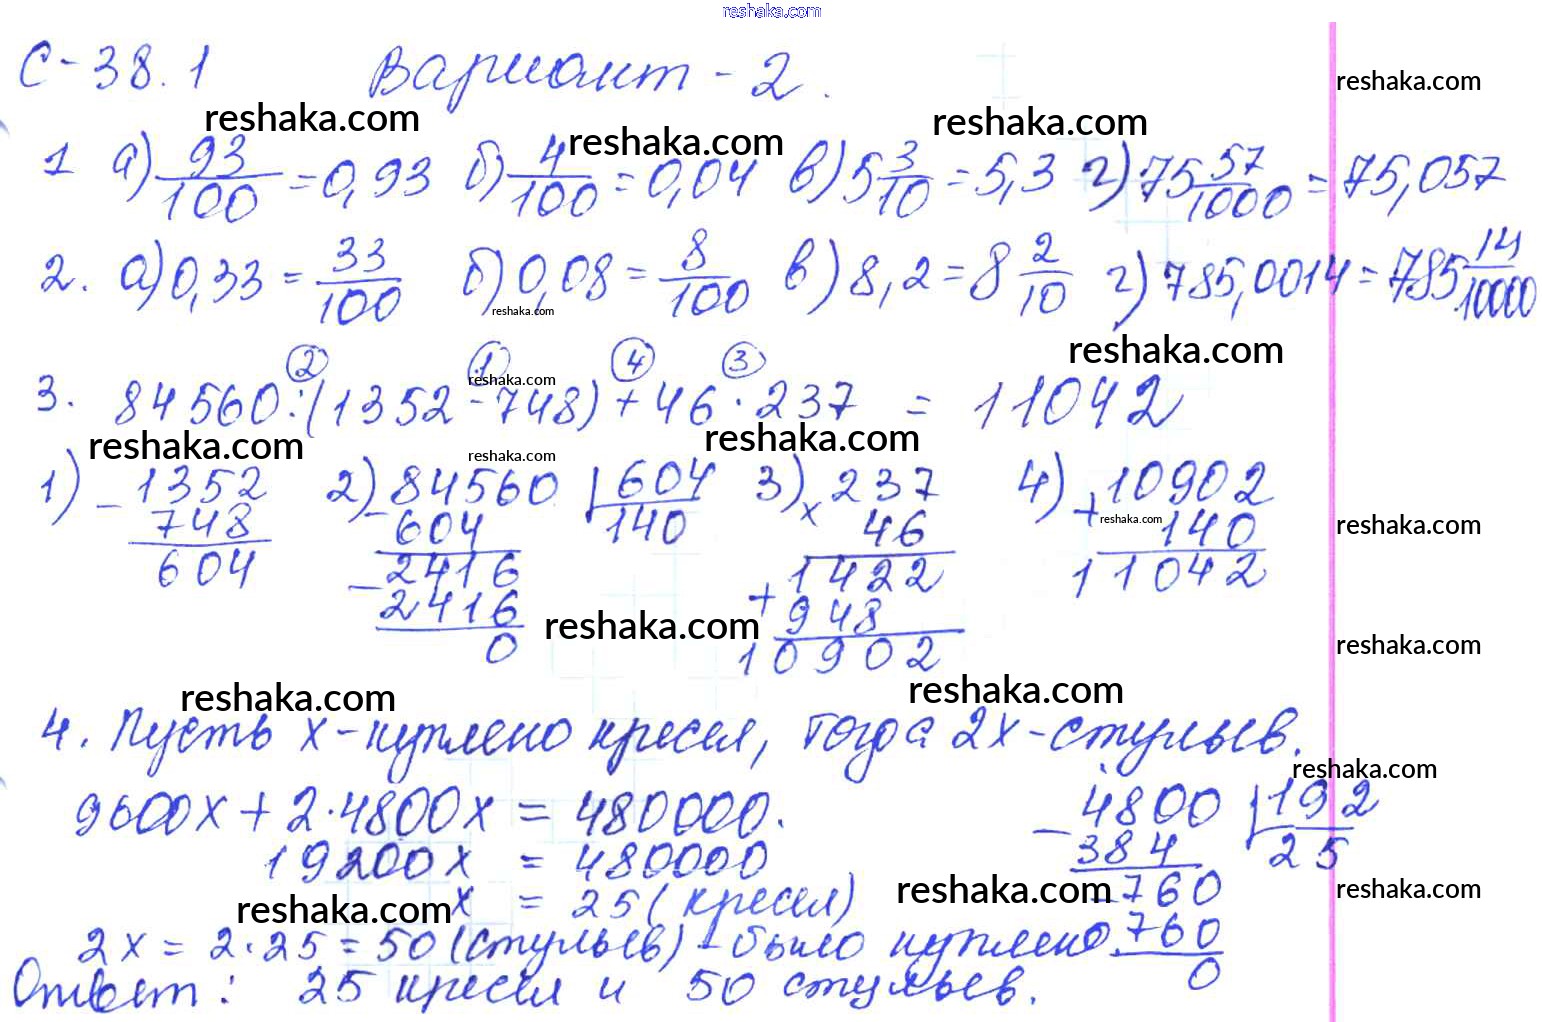 reshaka.com
С-38.1 Вариант - 2.
reshaka.com
reshaka.com reshaka.com reshaka.com
1 а) 93/100 = 0,93 б) 4/100 = 0,04 в) 5 3/10 = 5,3 г) 75 57/1000 = 75,057
2. а) 0,33 = 33/100 б) 0,08 = 8/100 в) 8,2 = 8 2/10 г) 785,0014 = 785 14/10000
reshaka.com
reshaka.com
② ① ④ ③
reshaka.com
3. 84560:(1352-748)+46·237 = 11042
reshaka.com reshaka.com reshaka.com
1) - 1352 2) 84560 604 3) x 237 4) + 10902
748 - 604 140 46 reshaka.com 140 reshaka.com
604 - 2416 1422 11042
2416 + 948
0 reshaka.com 10902 reshaka.com
reshaka.com reshaka.com
4. Пусть x - куплено кресел, тогда 2x - стульев.
reshaka.com
9600x + 2·4800x = 480000. - 4800 192
19200x = 480000 384 25
x = 25 (кресел) - 760
reshaka.com reshaka.com reshaka.com
2x = 2·25 = 50 (стульев) - было куплено. 760
0
Ответ: 25 кресел и 50 стульев.